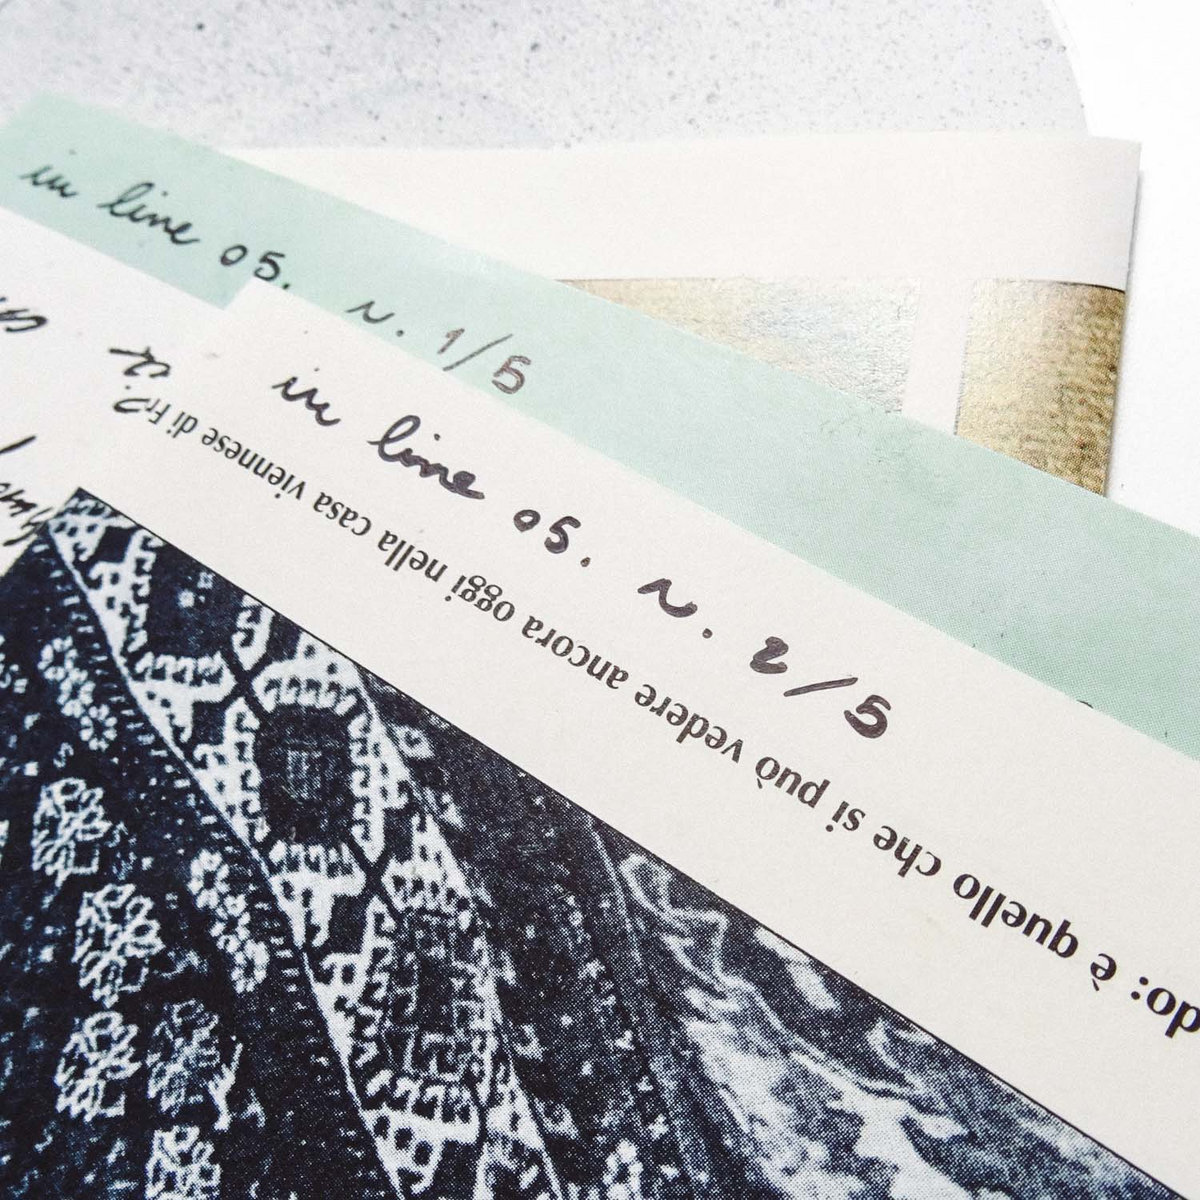 in line 05. n. 1/5
in line 05. n. 2/5
do: è quello che si può vedere ancora oggi nella casa viennese di Fr